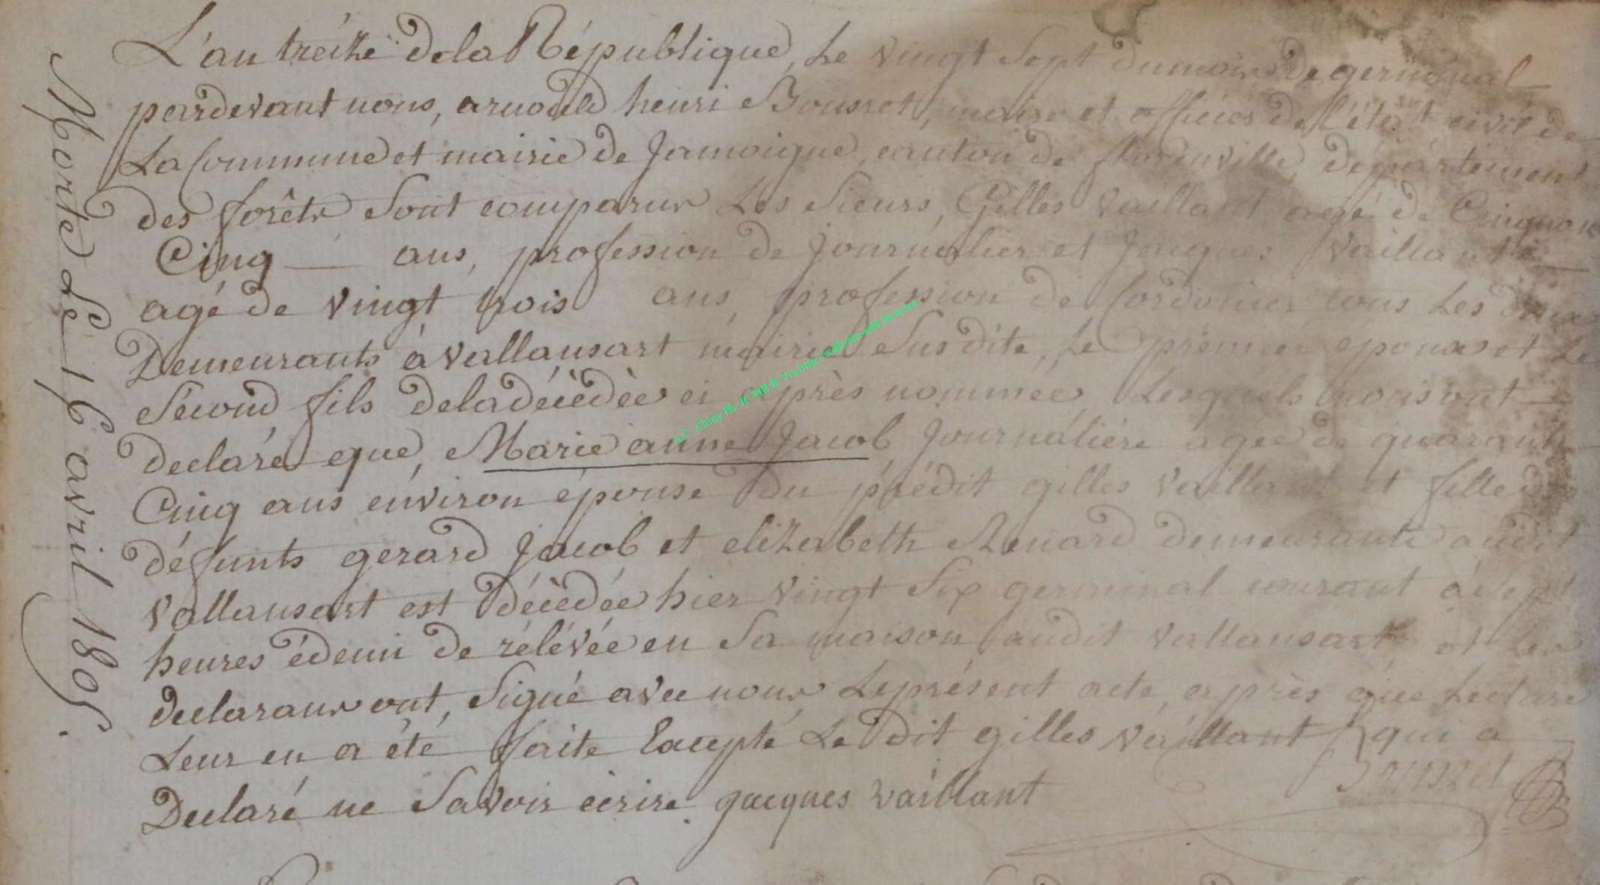 L'an treize de la République, le vingt sept du mois de germinal
pardevant nous, arnould henri Bousret, maire et officier de l'état civil de
La Commune et mairie de Jamoigne canton de florenville, département
des forêts Sont comparus Les Sieurs, Gilles Vaillant agé de Cinquante
Cinq — ans, profession de journalier et Jacques Vaillant
agé de vingt trois ans, profession de Cordonier tous Les deux
Demeurants à vallansart mairie Susdite Le premier epoux et Le
Second fils de la décédée ci après nommée, Lesquels nous ont
declaré que, Marie anne Jacob Journalière agée de quarante
Cinq ans environ épouse du prédit gilles Vaillant et fille des
défunts gerard Jacob et elizabeth Renard demeurante audit
vallansart est décédée hier vingt Six germinal courant à sept
heures édemi de rélévée en Sa maison audit vallansart et Les
declarans ont, Signé avec nous Le présent acte, après que Lecture
Leur en a été faite Excepté Le dit gilles vaillant qui a
Declaré ne Savoir écrire. jacques vaillant
Morte Le 16 avril 1805.